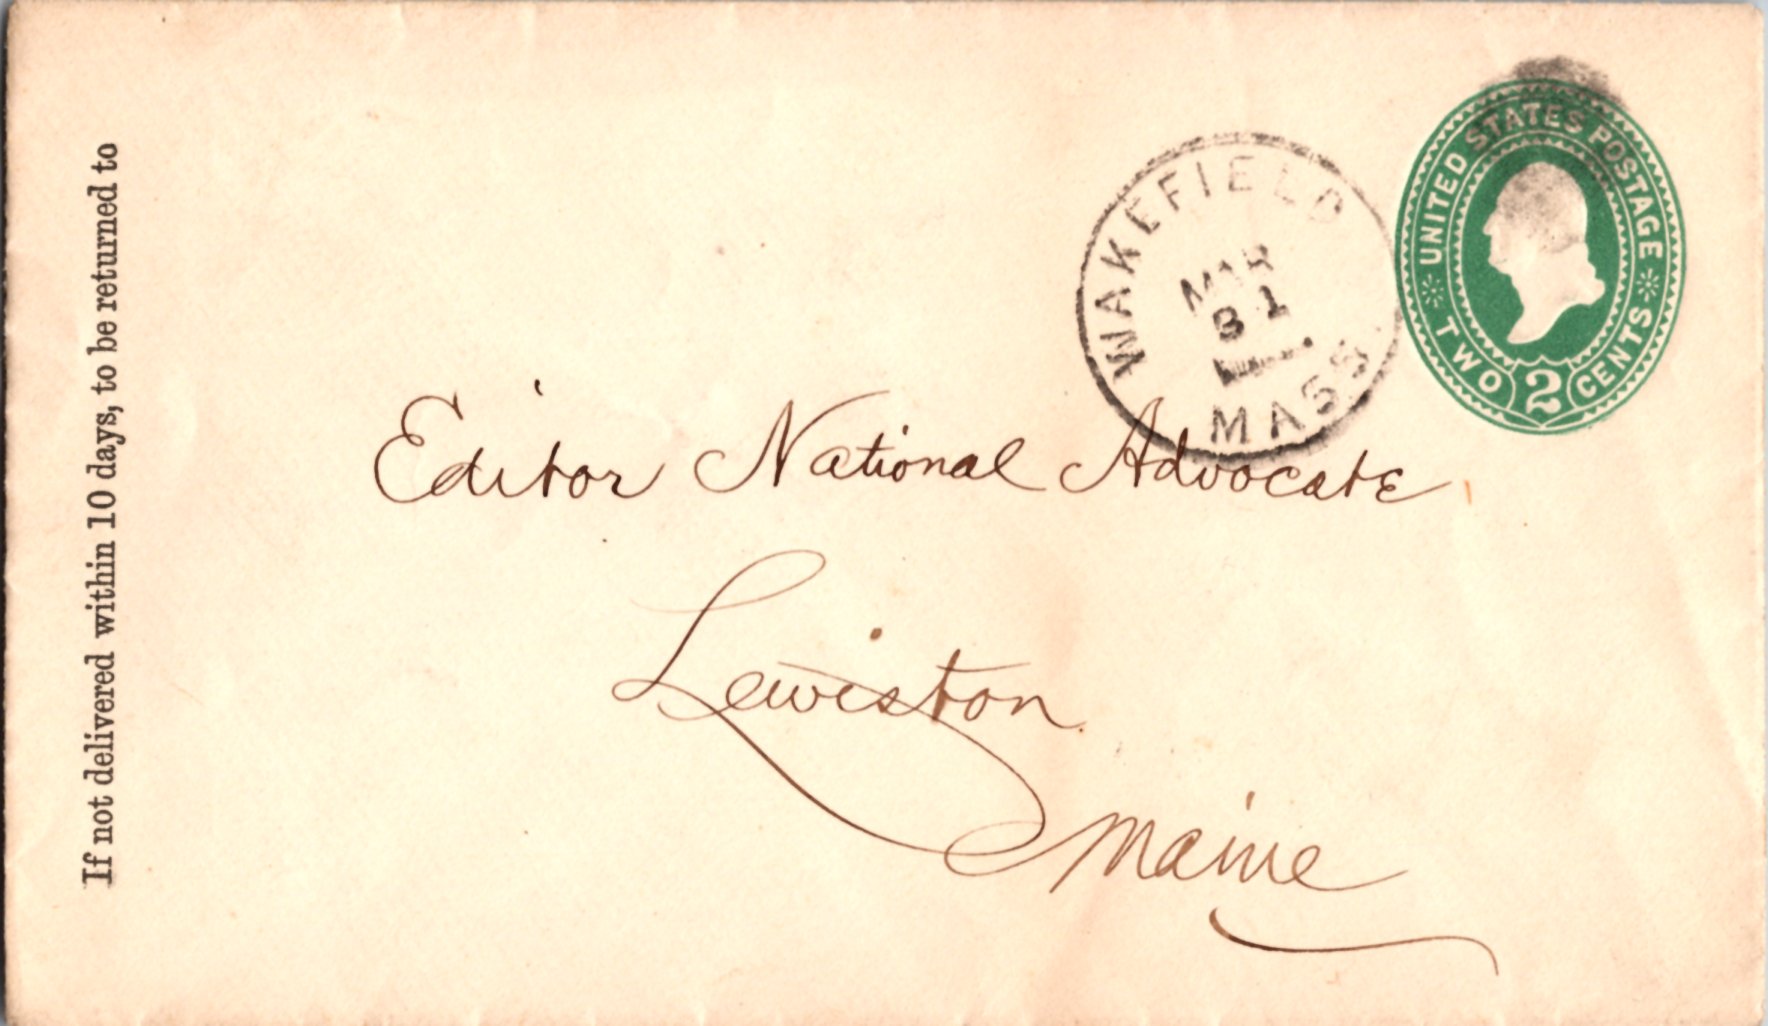 If not delivered within 10 days, to be returned to
WAKEFIELD
MAR
31
MASS.
UNITED STATES POSTAGE
TWO 2 CENTS
Editor National Advocate
Lewiston
Maine